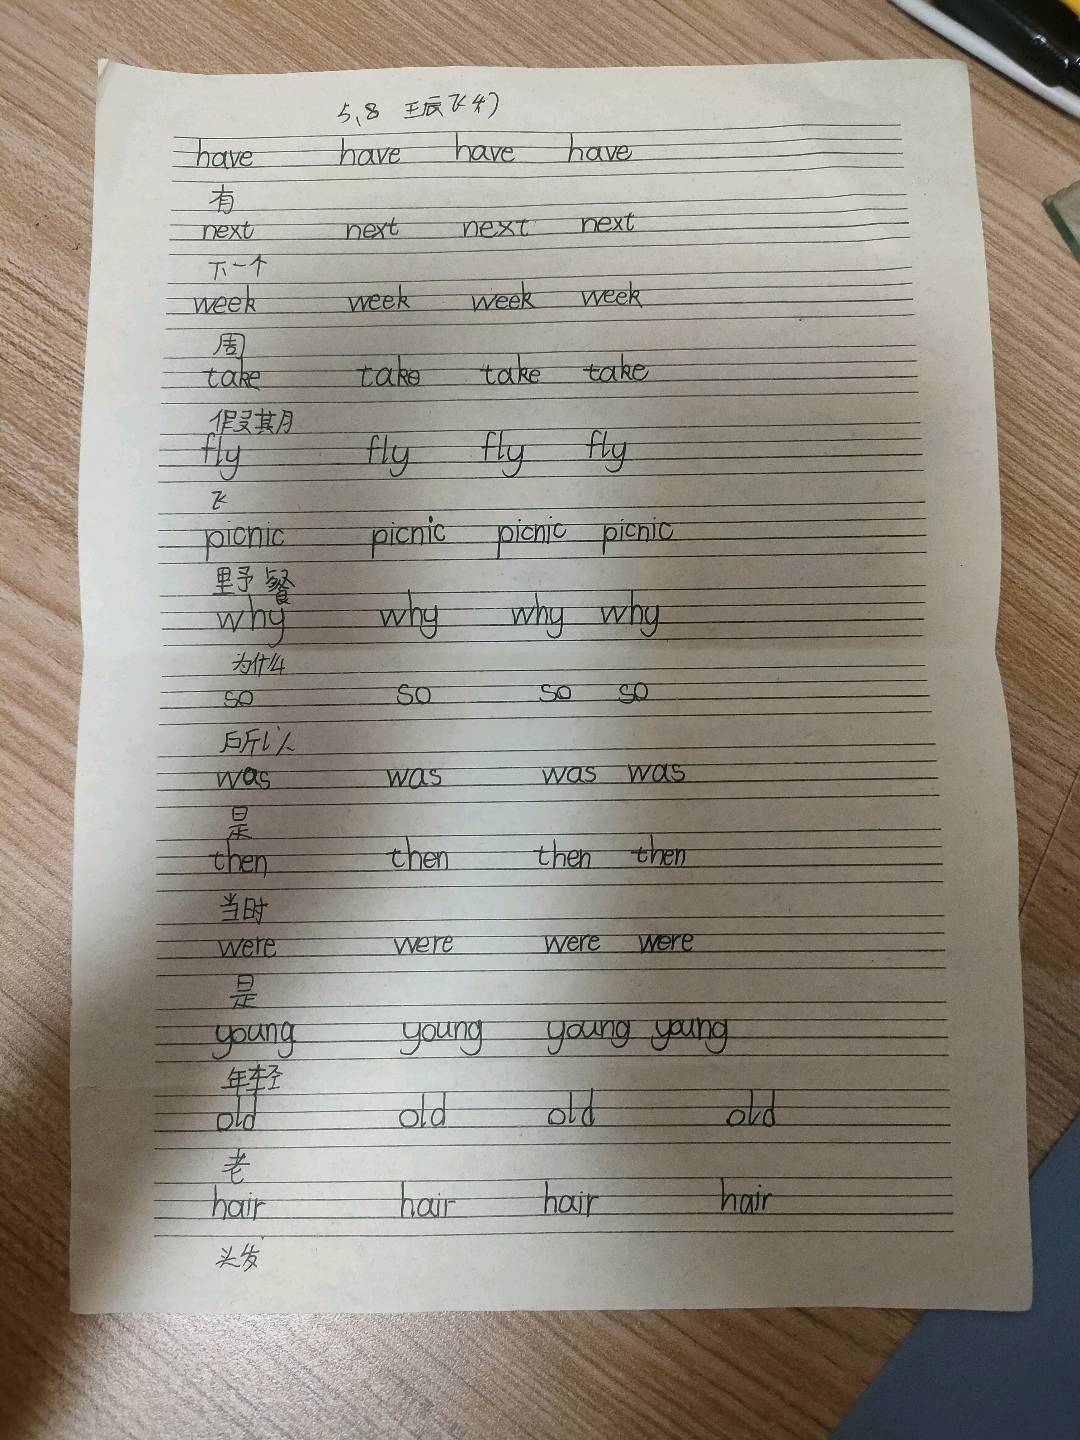 5、8 王辰飞
have have have have
有
next next next next
下一个
week week week week
周
take take take take
假期
fly fly fly fly
飞
picnic picnic picnic picnic
野餐
why why why why
为什么
so so so so
所以
was was was was
是
then then then then
当时
were were were were
是
young young young young
年轻
old old old old
老
hair hair hair hair
头发